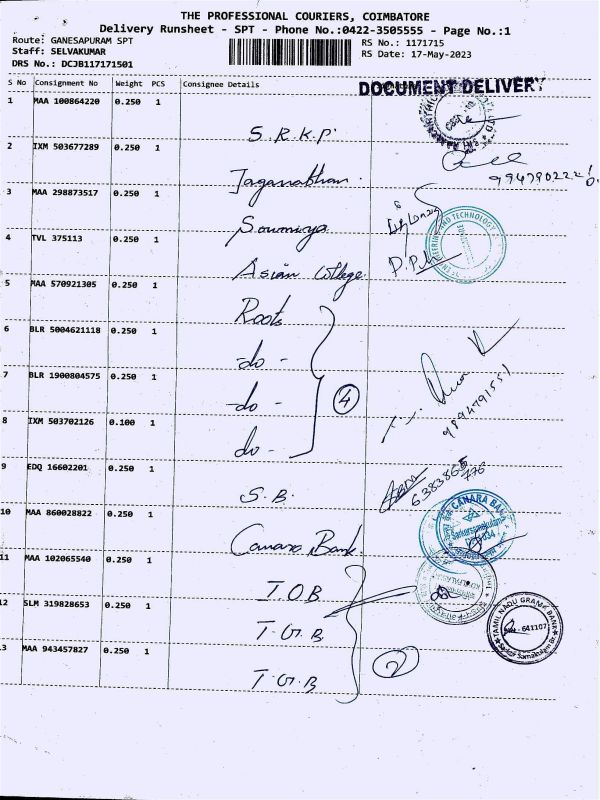 THE PROFESSIONAL COURIERS, COIMBATORE
Delivery Runsheet - SPT - Phone No.:0422-3505555 - Page No.:1
Route: GANESAPURAM SPT
RS No.: 1171715
Staff: SELVAKUMAR
RS Date: 17-May-2023
DRS No.: DCJB117171501
S No Consignment No Weight PCS Consignee Details
DOCUMENT DELIVERY
1 MAA 100864220 0.250 1 S.R.K.P.
2 IXM 503677289 0.250 1 Jaganathan
3 MAA 298873517 0.250 1 Soumiya
4 TVL 375113 0.250 1 Asian College
ENGINEERING AND TECHNOLOGY
5 MAA 570921305 0.250 1 Roots
6 BLR 5004621118 0.250 1 -do-
7 BLR 1900804575 0.250 1 -do-
4
9894791551
8 IXM 503702126 0.100 1 do-
9 EDQ 16602201 0.250 1 S.B.
10 MAA 860028822 0.250 1 Canara Bank
CANARA BANK
11 MAA 102065540 0.250 1 I O B
12 SLM 319828653 0.250 1 T.G.B
TAMIL NADU GRAMA BANK
641107
3 MAA 943457827 0.250 1 T.G.B
2